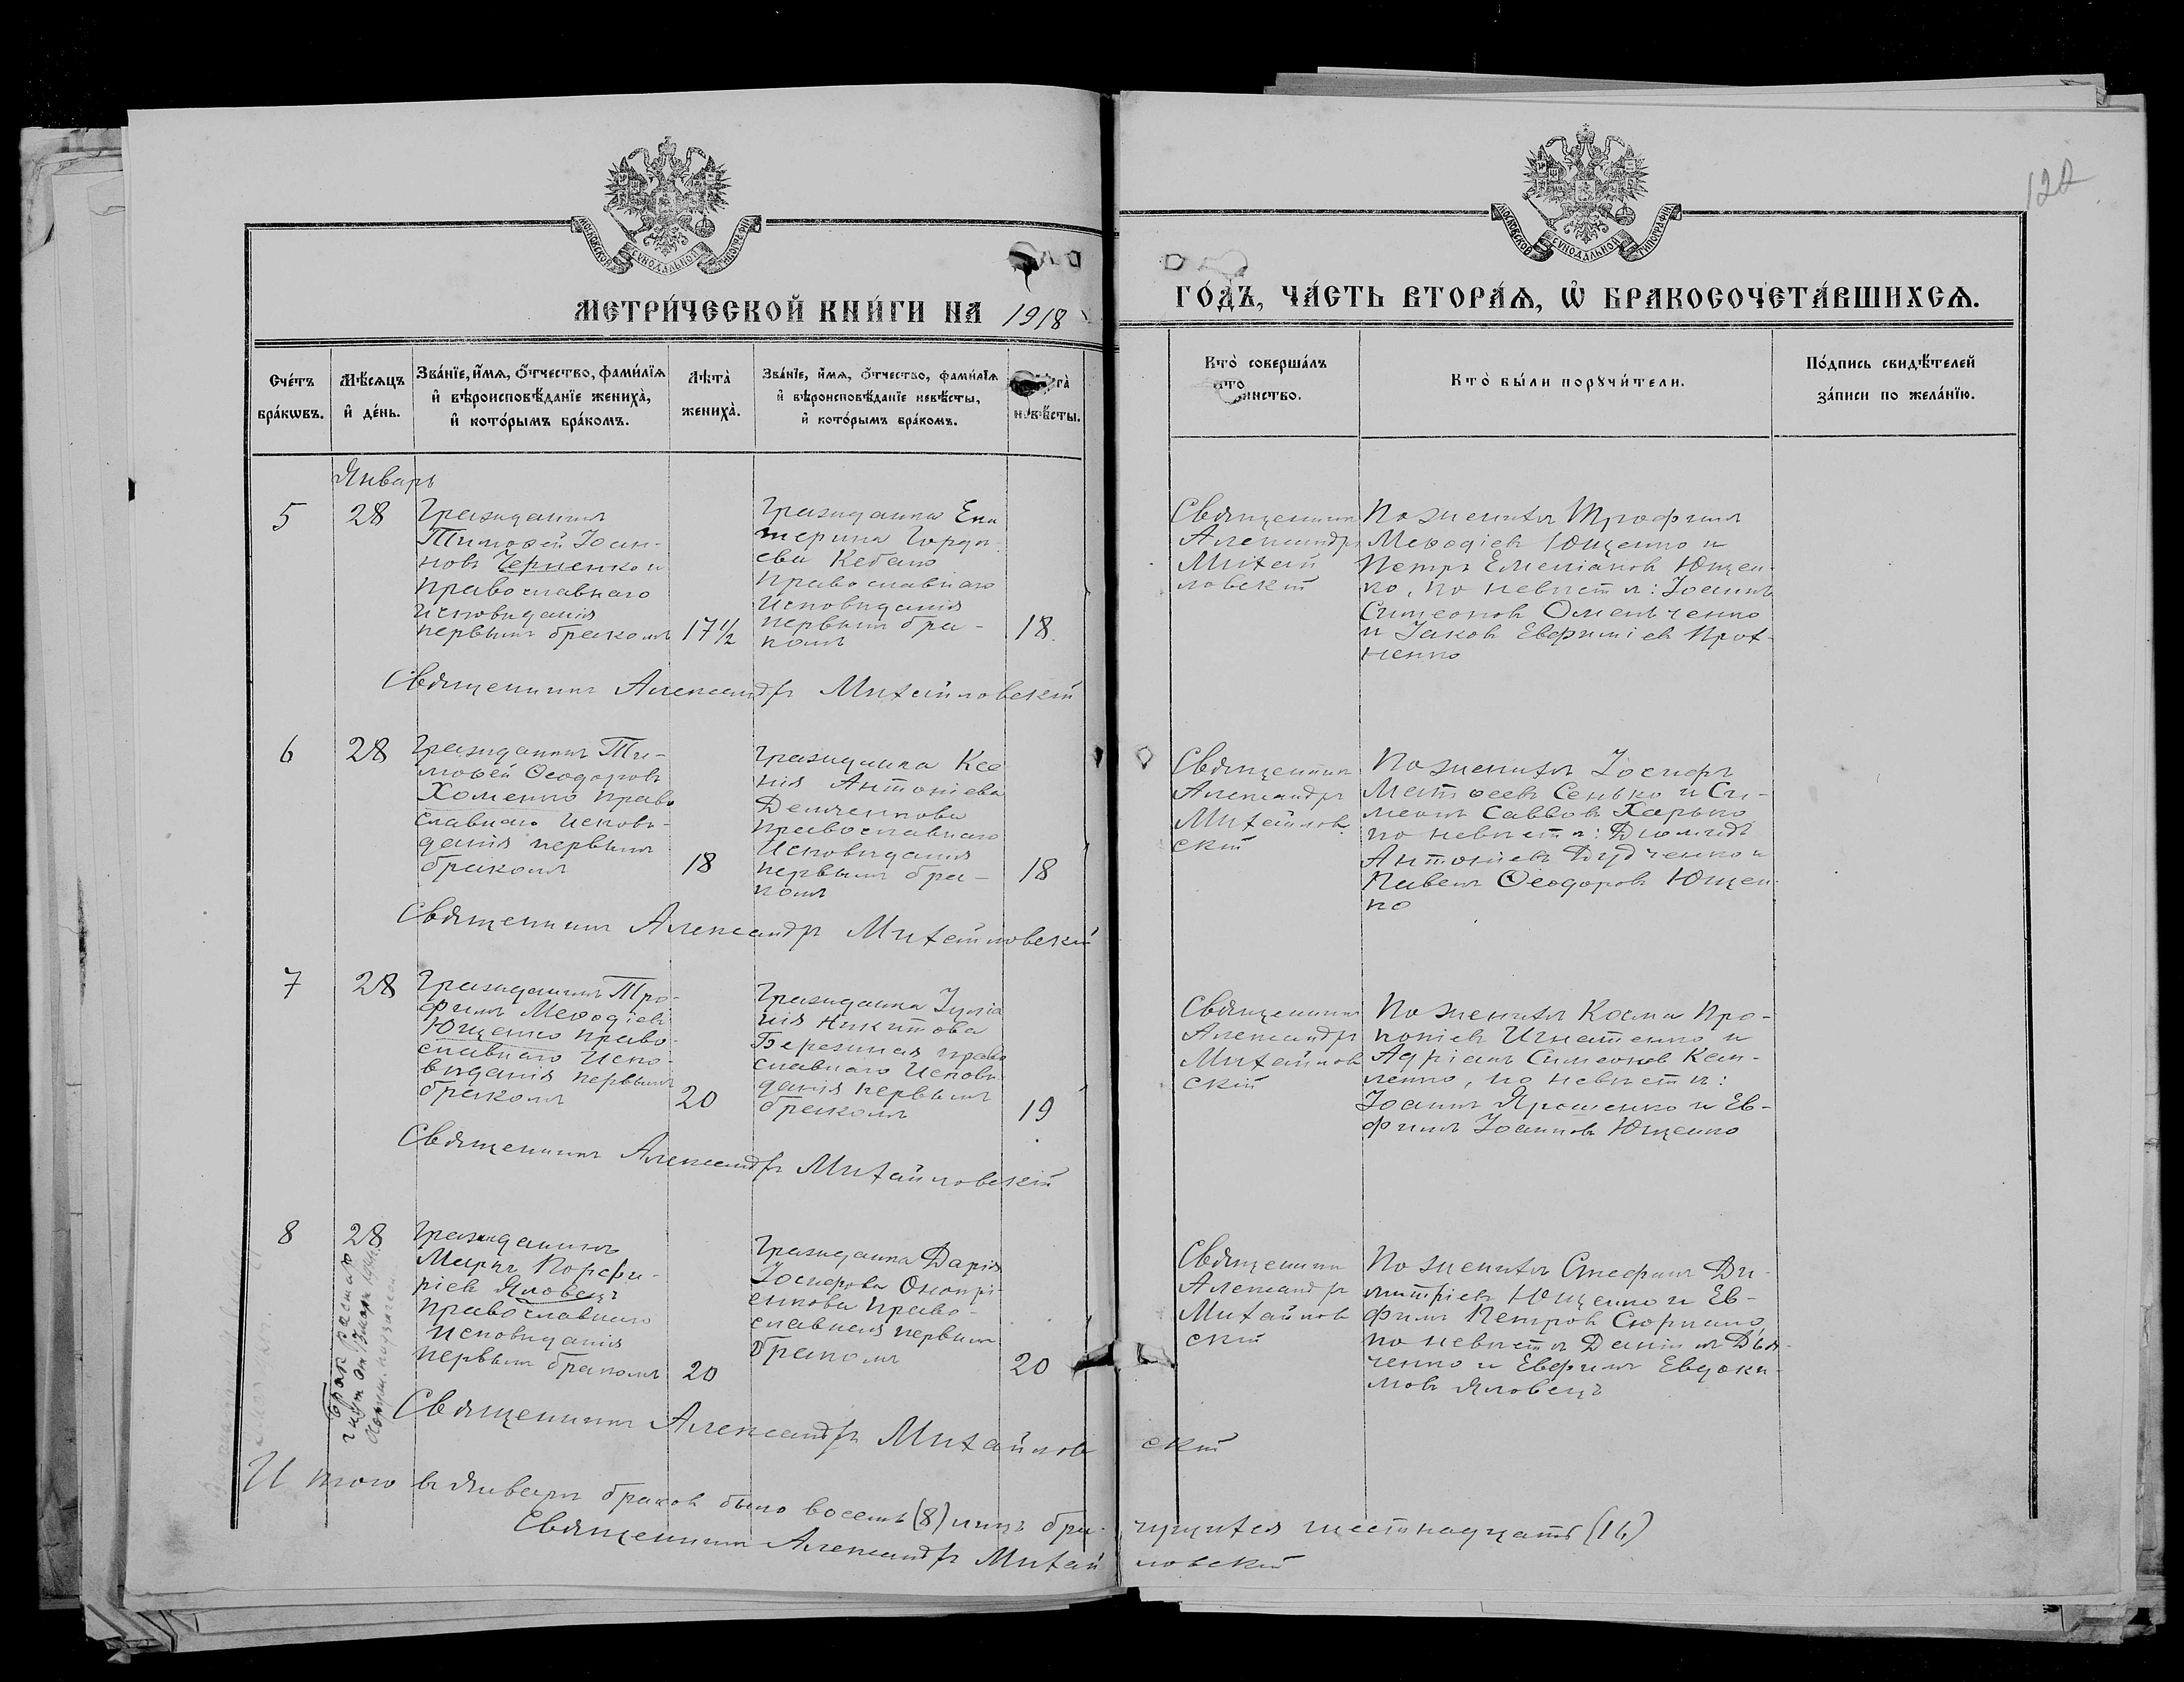 120
МОСКОВСКОЙ СѴНОДАЛЬНОЙ ТИПОГРАФІИ
МОСКОВСКОЙ СѴНОДАЛЬНОЙ ТИПОГРАФІИ
МЕТРИ́ЧЕСКОЙ КНИ́ГИ НА 1918
ГО́ДЪ, ЧА́СТЬ ВТОРА́Ѧ, Ѡ҆ БРАКОСОЧЕТА́ВШИХСѦ.
Сче́тъ
бра́кѡвъ.
Мѣ́сѧцъ
и҆ де́нь.
Зва́нїе, и҆́мѧ, ѻ҆́тчество, фами́лїѧ
и҆ вѣроисповѣ́данїе жениха̀,
и҆ кото́рымъ бра́комъ.
Лѣ́та̀
жениха̀.
Зва́нїе, и҆́мѧ, ѻ҆́тчество, фами́лїѧ
и҆ вѣроисповѣ́данїе невѣ́сты,
и҆ кото́рымъ бра́комъ.
невѣ́сты.
Кто̀ соверша́лъ
Кто̀ бы́ли порꙋчи́тели.
По́дпись свидѣ́телей
за́писи по жела́нїю.
Январь
5
28
Гражданинъ
Тимоѳей Іоан-
новъ Черненко и
православнаго
исповѣданія
первымъ бракомъ
17 1/2
Гражданка Ека
терина Горде-
ева Кебало
православнаго
исповѣданія
первымъ бра-
комъ
18.
Священникъ
Александръ
Михай
ловскій
По женихѣ Трофимъ
Меѳодіевъ Ющенко и
Петръ Емеліановъ Ющен-
ко, по невѣстѣ: Іоаннъ
Симеоновъ Омельченко
и Іаковъ Евфиміевъ Прох-
ненко
Священникъ Александръ Михайловскій
6
28
Гражданинъ Ти-
моѳей Ѳеодоровъ
Хоменко право
славнаго исповѣ-
данія первымъ
бракомъ
18
Гражданка Ксе
нія Антоніева
Демченкова
православнаго
исповѣданія
первымъ бра-
комъ
18
Священникъ
Александръ
Михайлов-
скій
По женихѣ Іосифъ
Матѳеевъ Сенько и Си-
меонъ Саввовъ Харько
по невѣстѣ: Діомидъ
Антоніевъ Дудченко и
Павелъ Ѳеодоровъ Ющен-
ко
Священникъ Александръ Михайловскій
7
28
Гражданинъ Тро-
фимъ Меѳодіевъ
Ющенко право-
славнаго испо-
вѣданія первымъ
бракомъ
20
Гражданка Іуліа
нія Никитова
Березная право
славнаго исповѣ
данія первымъ
бракомъ
19
Священникъ
Александръ
Михайлов
скій
По женихѣ Косма Про-
копіевъ Игнатенко и
Адріанъ Симеоновъ
по невѣстѣ:
Іоаннъ Ярошенко и Ев-
фимъ Іоанновъ Ющенко
Священникъ Александръ Михайловскій
8
28
Гражданинъ
Порфи-
ріевъ Яловецъ
православнаго
исповѣданія
первымъ бракомъ
20
Гражданка Дарія
Іосифова Онопрі-
енкова право-
славная первымъ
бракомъ
20
Священникъ
Александръ
Михайлов
скій
По женихѣ Стефанъ Ди-
митріевъ Ющенко и Ев-
фимъ Петровъ
по невѣстѣ Даніилъ Дья-
ченко и Евфимъ Евдоки-
мовъ Яловецъ
Брак расторг
Священникъ Александръ Михайловскій
Итого въ Январѣ браковъ было восемь (8) лицъ бра-чущихся шестнадцать (16)
Священникъ Александръ Михайловскій